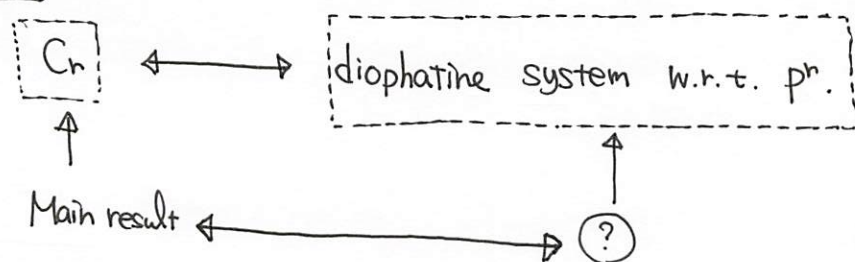 Cr diophatine system w.r.t. pⁿ.
Main result ?